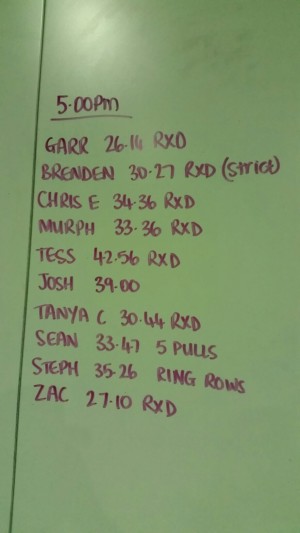 5.00pm
GARR 26.14 RXD
BRENDEN 30.27 RXD (strict)
CHRIS E 34.36 RXD
MURPH 33.36 RXD
TESS 42.56 RXD
JOSH 39.00
TANYA C 30.44 RXD
SEAN 33.47 5 PULLS
STEPH 35.26 RING ROWS
ZAC 27.10 RXD